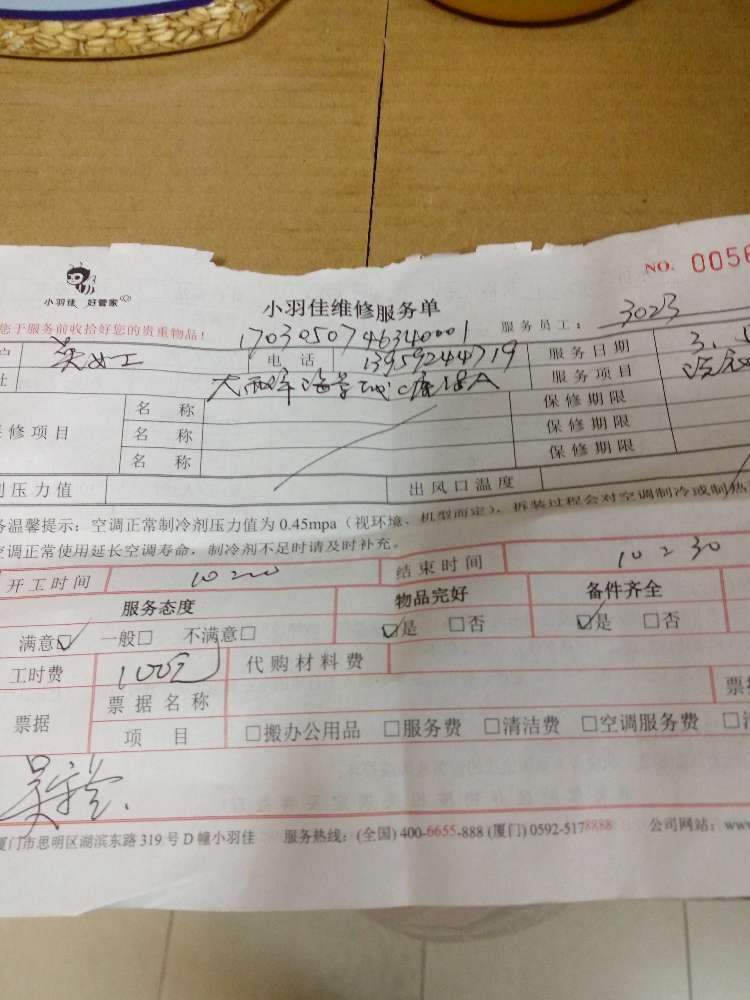 小羽佳 好管家
NO. 0056
小羽佳维修服务单
您于服务前收拾好您的贵重物品!
1703050746340001
服务员工: 3023
电话 13959244719 服务日期 3.
服务项目
名称 保修期限
修项目 名称 保修期限
名称 保修期限
压力值 出风口温度
温馨提示:空调正常制冷剂压力值为 0.45mpa(视环境、机型而定),拆装过程会对空调制冷或制热
调正常使用延长空调寿命,制冷剂不足时请及时补充。
开工时间 结束时间 10:30
服务态度 物品完好 备件齐全
满意☑ 一般□ 不满意□ ☑是 □否 ☑是 □否
工时费 100元 代购材料费
票据 票据名称
项目 □搬办公用品 □服务费 □清洁费 □空调服务费 □
厦门市思明区湖滨东路 319 号 D 幢小羽佳 服务热线:(全国) 400-6655-888 (厦门) 0592-5178888 公司网站:www